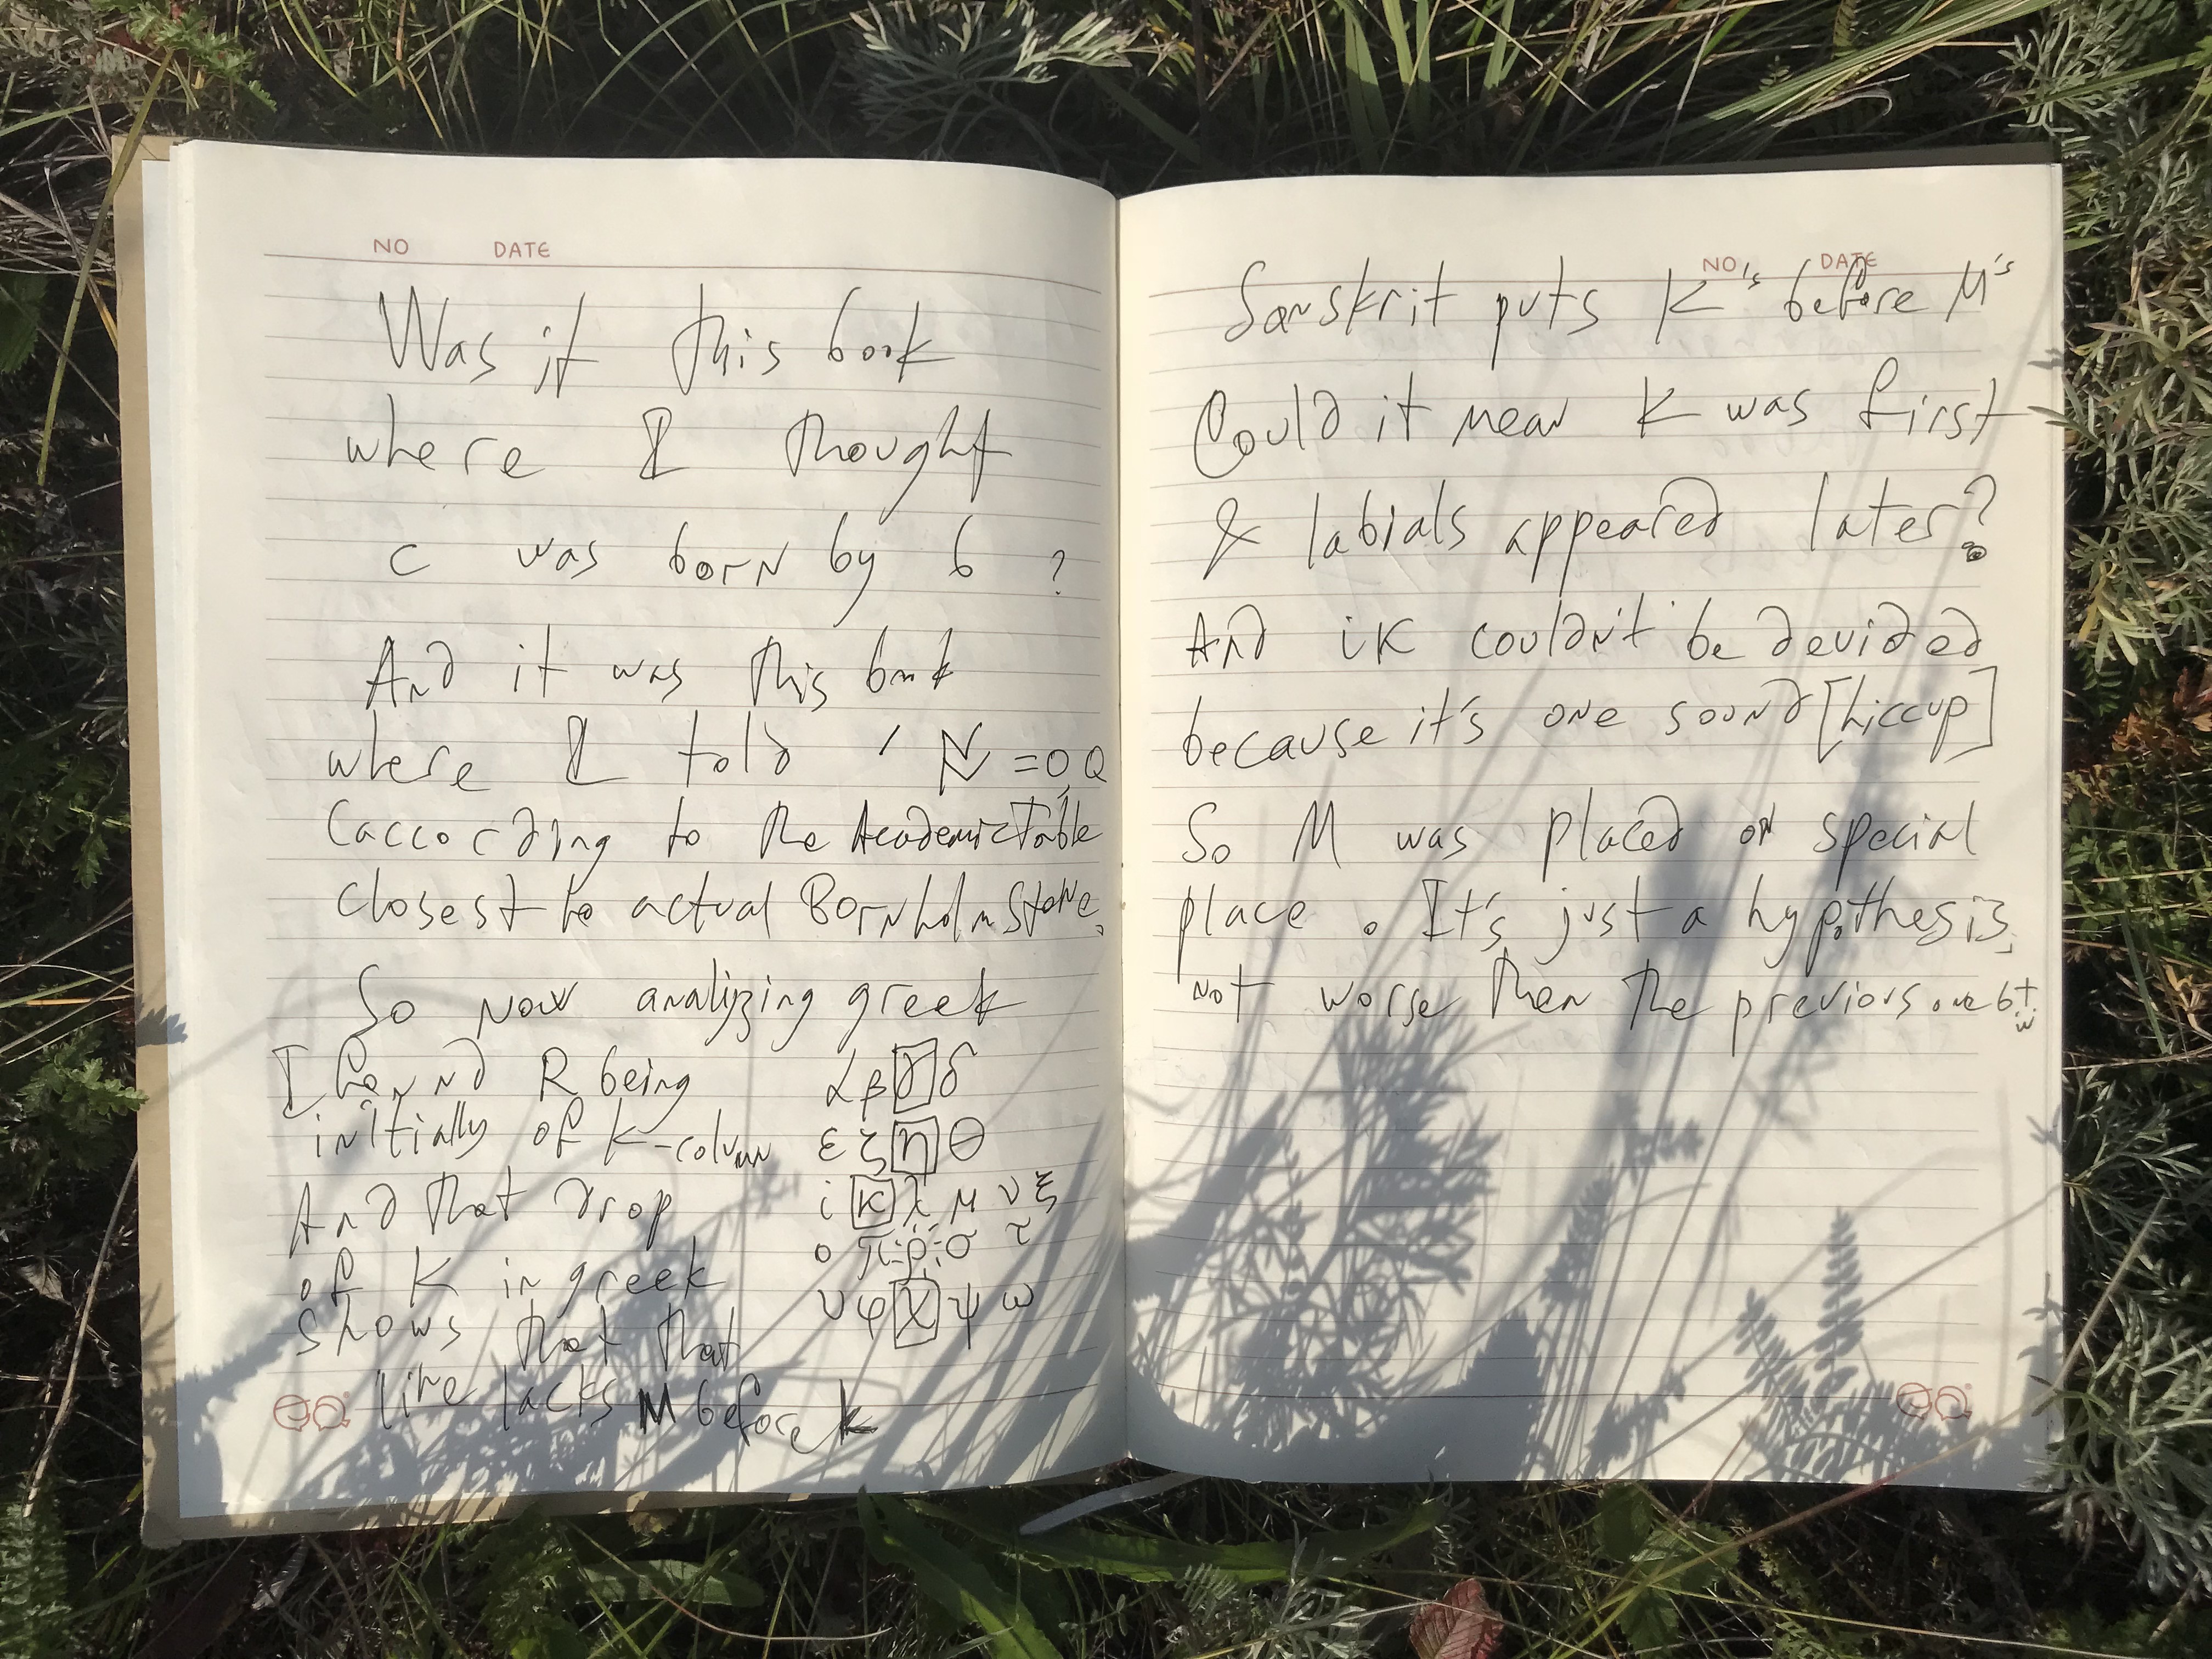 NO DATE
Was it this book
where I thought
C was born by 6 ?
And it was this book
where I told, N = 0Q
(according to the academic table
closest to actual Bornholm stone.
So now analizing greek
I found R being
initially of K-column
And that drop
of K in greek
shows that that
line lacks M before K
α β γ δ
ε ζ η θ
i κ λ μ ν ξ
ο π ρ σ τ
υ φ χ ψ ω
NO DATE
Sanskrit puts K's before M's
Could it mean K was first
& labials appeared later?
And iK couldn't be devided
because it's one sound [hiccup]
So M was placed on special
place. It's just a hypothesis
not worse then the previous.